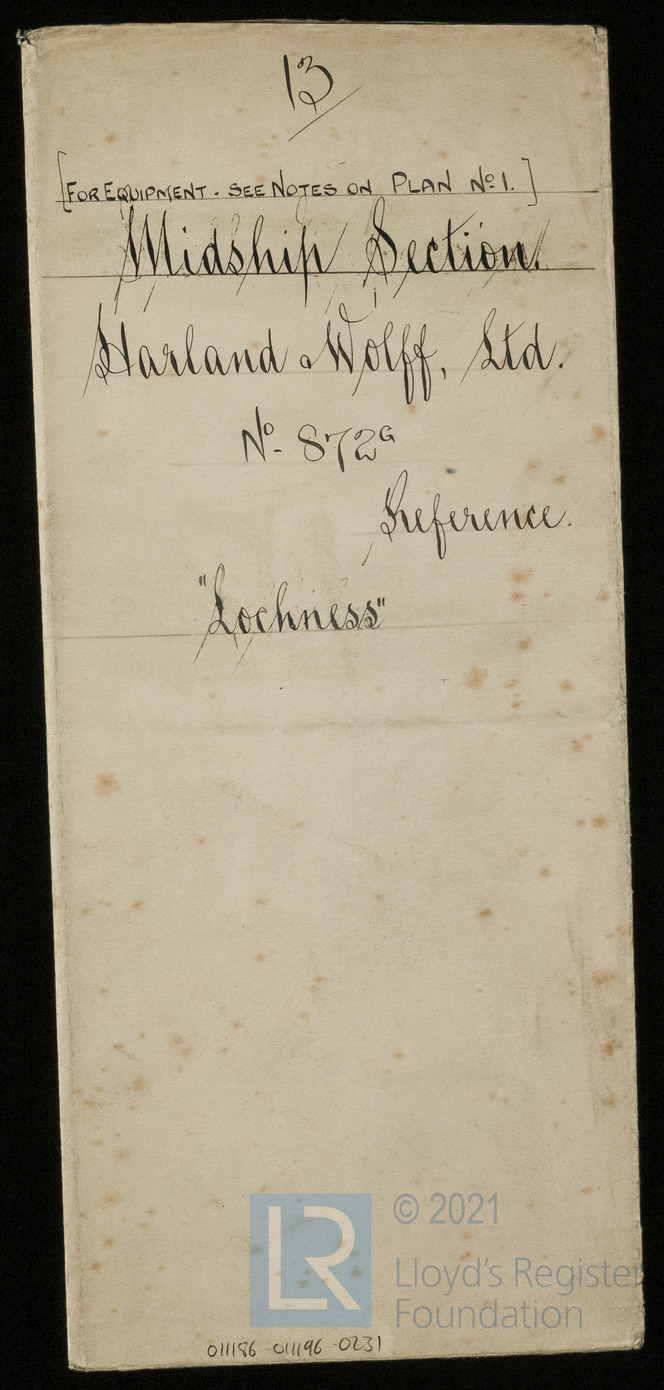 13
[FOR EQUIPMENT - SEE NOTES ON PLAN No 1.]
Midship Section.
Harland & Wolff, Ltd.
No- 872G
Reference.
"Lochness"
LR
© 2021
Lloyd's Register
Foundation
011186-011196-0231